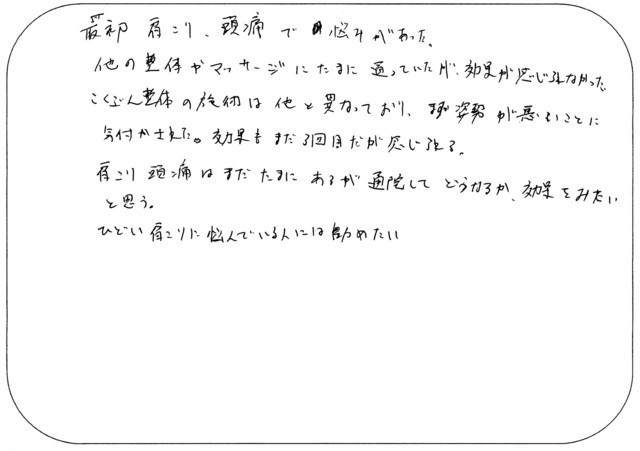 最初 肩こり、頭痛で 悩みがあった。
他の整体やマッサージにたまに通っていたが、効果が感じられなかった。
こくぶん整体の施術は他と異なっており、まず姿勢が悪いことに
気付かされた。効果もまだ3回目だが感じれる。
肩こり 頭痛はまだたまにあるが 通院してどうなるか、効果をみたい
と思う。
ひどい肩こりに悩んでいる人には勧めたい